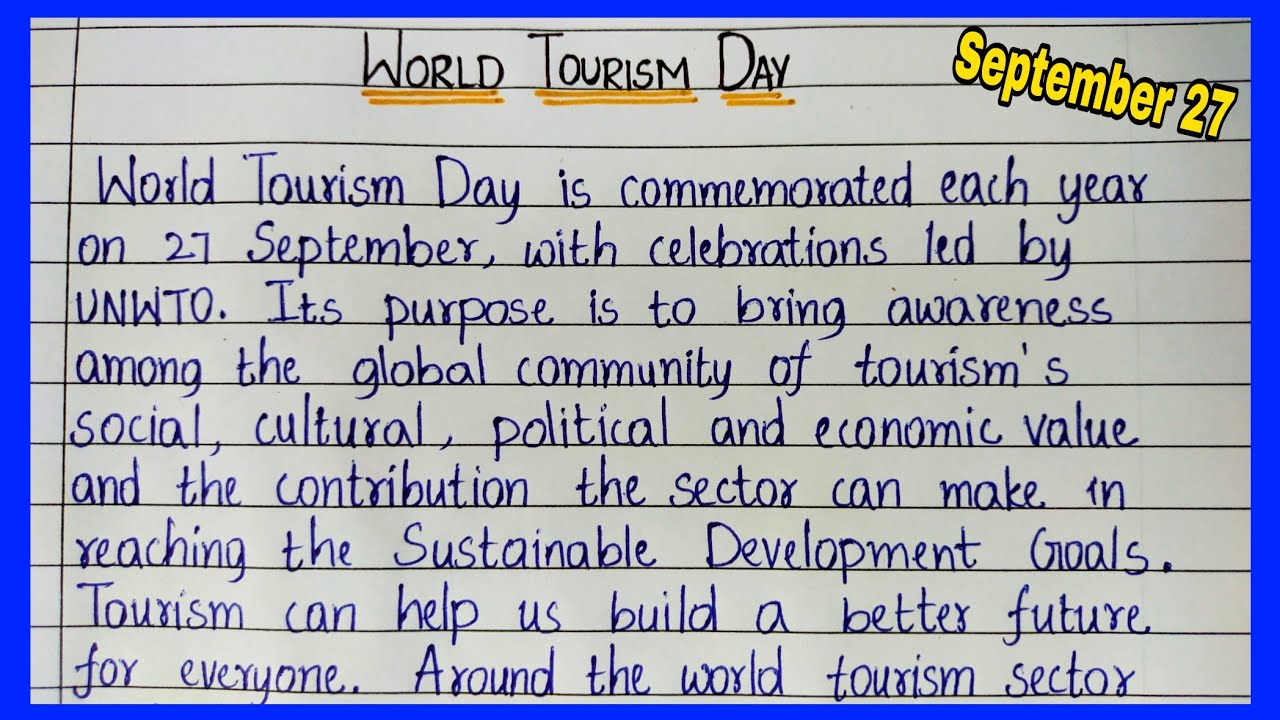 WORLD TOURISM DAY
September 27
World Tourism Day is commemorated each year
on 27 September, with celebrations led by
UNWTO. Its purpose is to bring awareness
among the global community of tourism's
social, cultural, political and economic value
and the contribution the sector can make in
reaching the Sustainable Development Goals.
Tourism can help us build a better future
for everyone. Around the world tourism sector